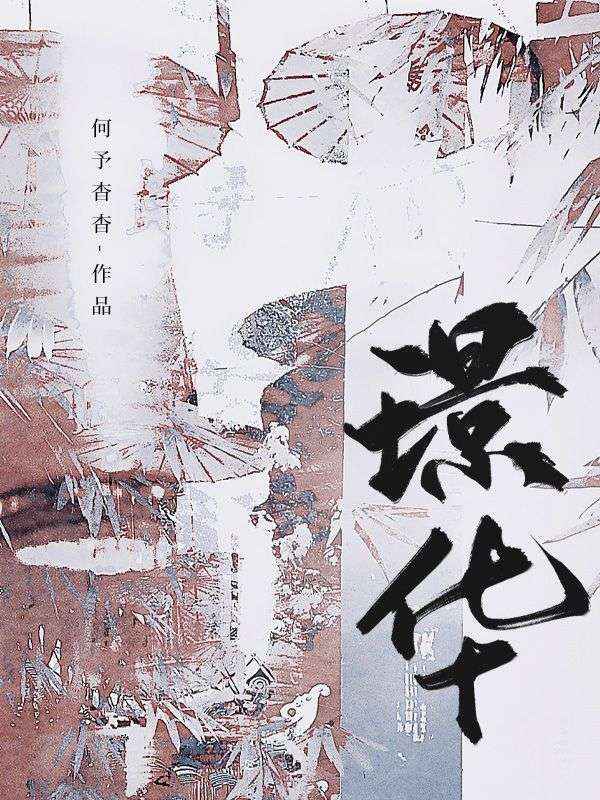 何予杳杳-作品
璟华